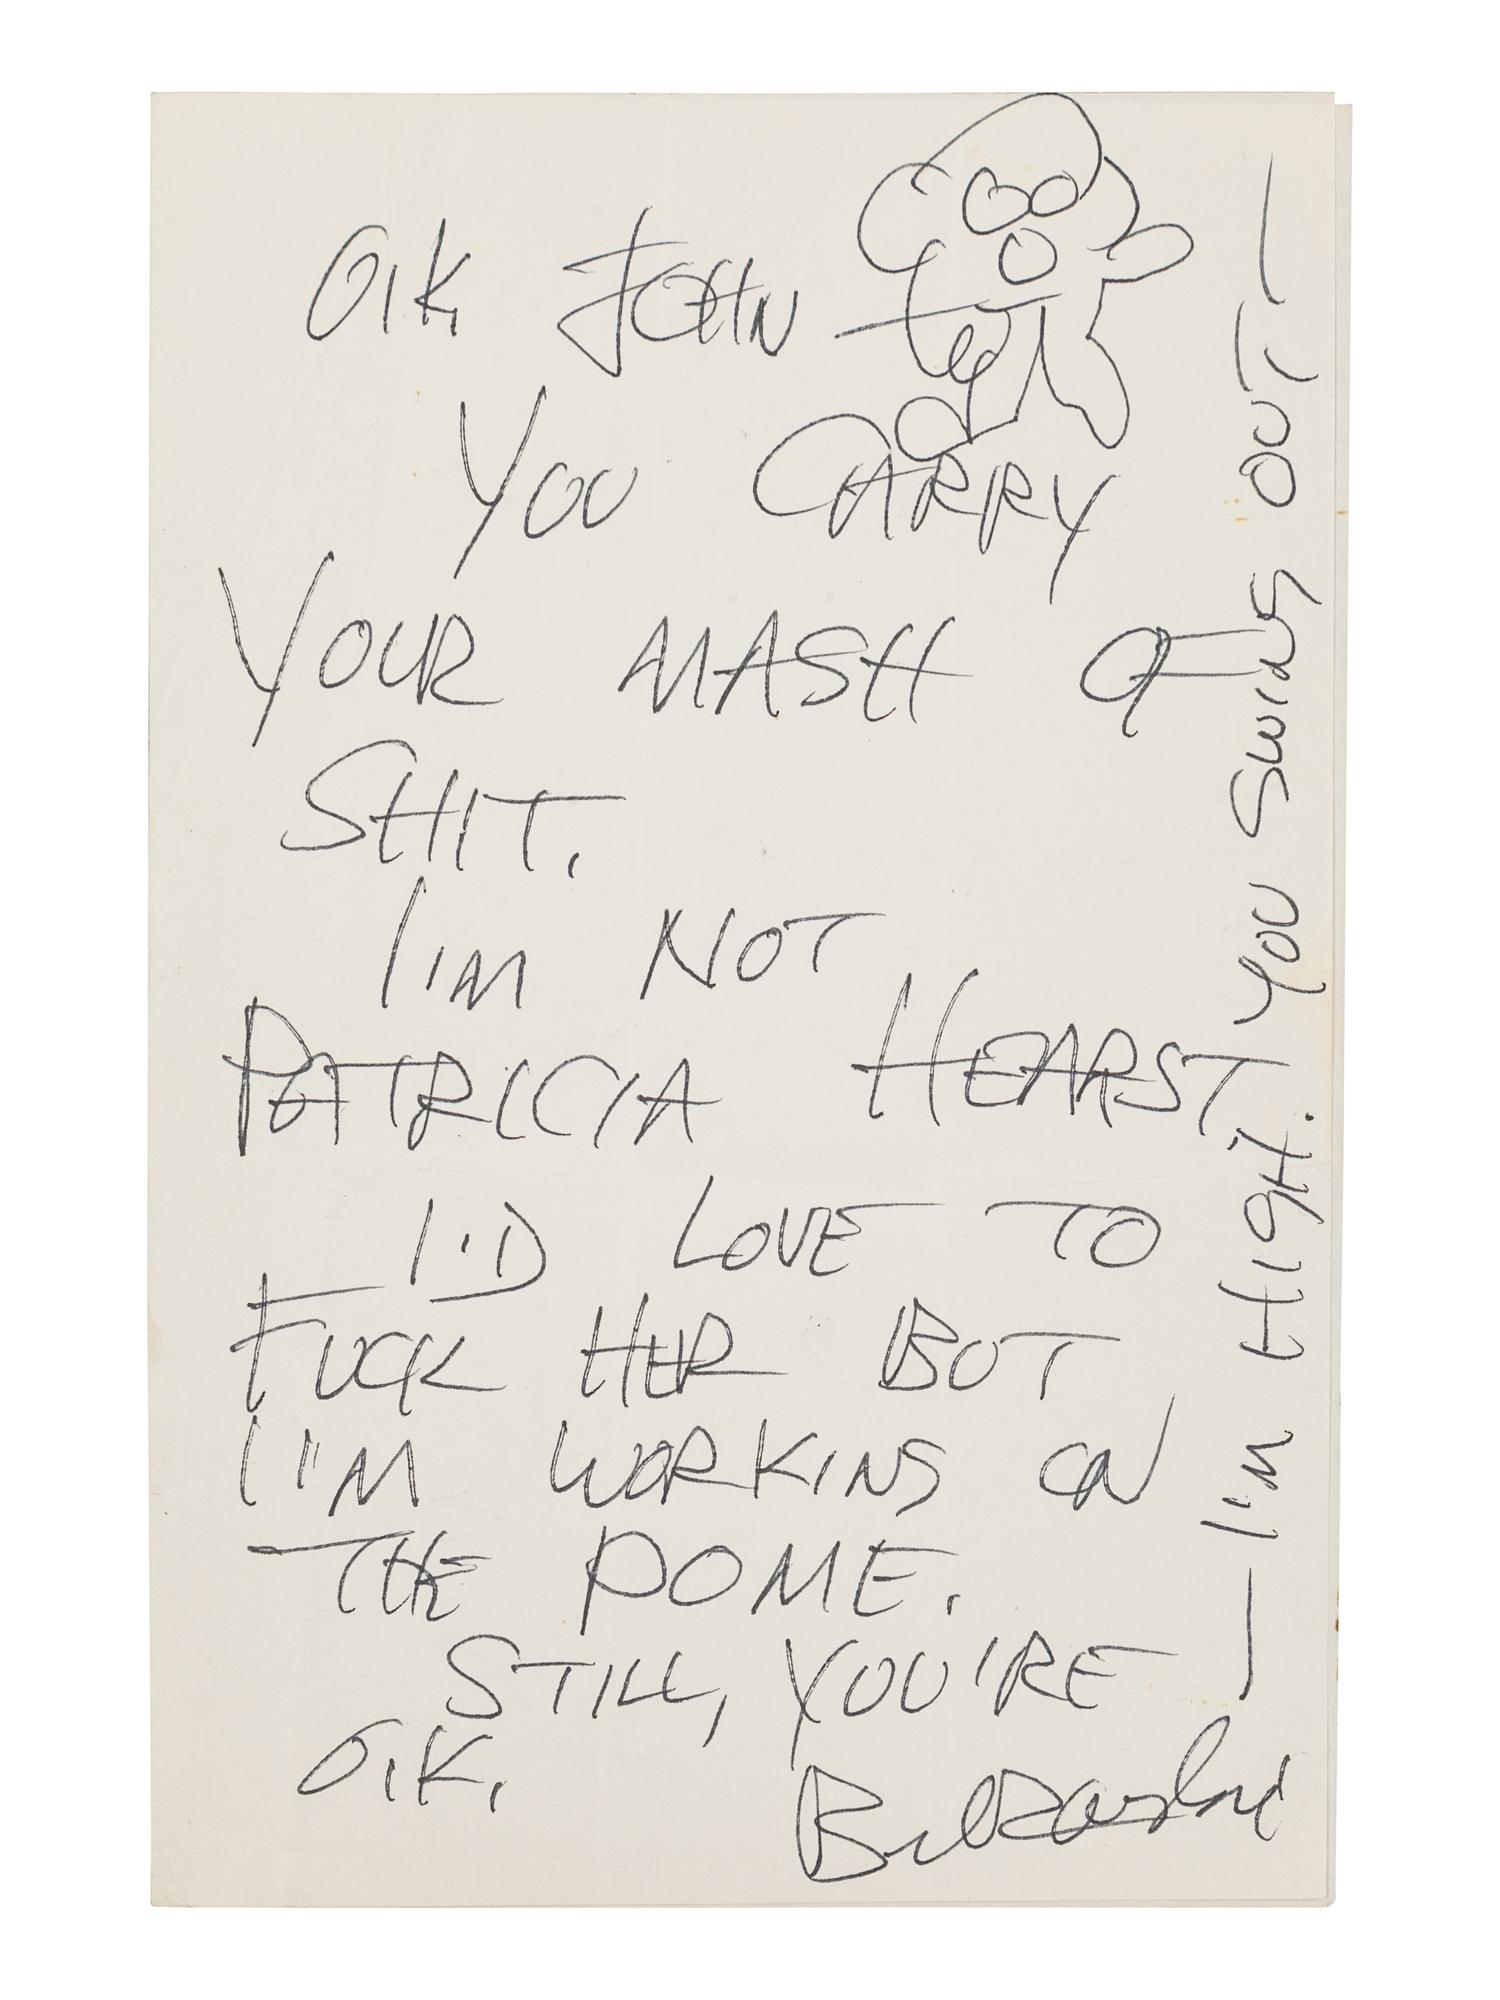 O.K. JOHN
YOU CARRY
YOUR MASH OF
SHIT.
I'M NOT
PATRICIA HEARST
I'D LOVE TO
FUCK HER BUT
I'M WORKING ON
THE POME.
STILL, YOU'RE
O.K.
— I'M HIGH. YOU SWING OUT! —